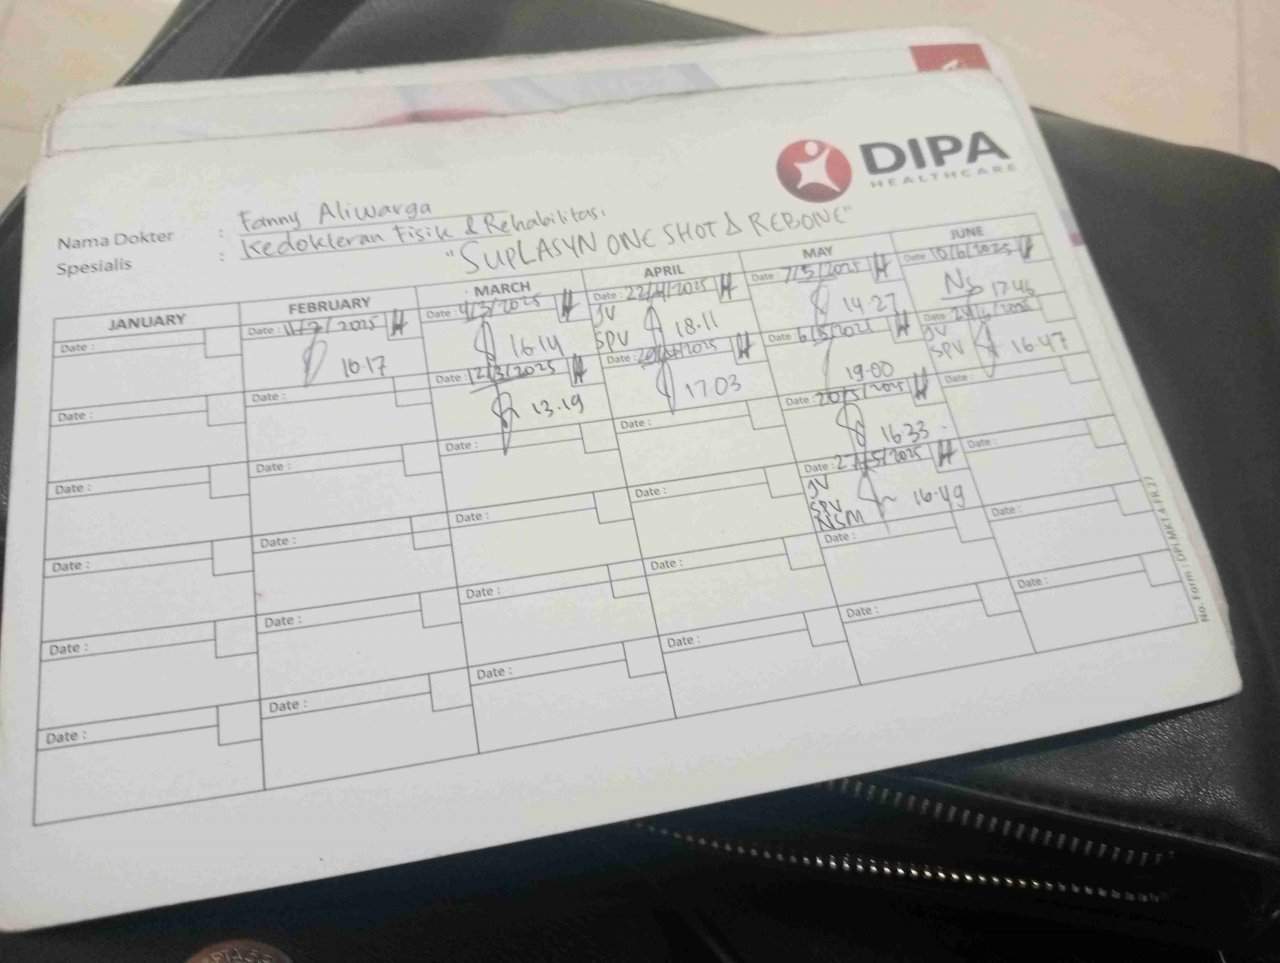 DIPA
HEALTHCARE
Nama Dokter : Fanny Aliwarga
Spesialis : Kedokteran Fisik & Rehabilitasi
"SUPLASYN ONE SHOT & REBONE"
JANUARY FEBRUARY MARCH APRIL MAY JUNE
Date : Date : 11/2/2025 Date : 4/3/2025 Date : 22/4/2025 Date : 7/5/2025 Date : 10/6/2025
16.17 16.14 JV SPV 18.11 14.27 17.46
Date : Date : Date : 12/3/2025 Date : Date : Date :
13.19 17.03 19.00 JV SPV 16.47
Date : Date : Date : Date : Date : 20/5/2025 Date :
16.33
Date : Date : Date : Date : Date : 27/5/2025 Date :
JV SPV NSM 16.49
Date : Date : Date : Date : Date : Date :
Date : Date : Date : Date : Date : Date :
No. Form : DPI.MKT.4.FR.37